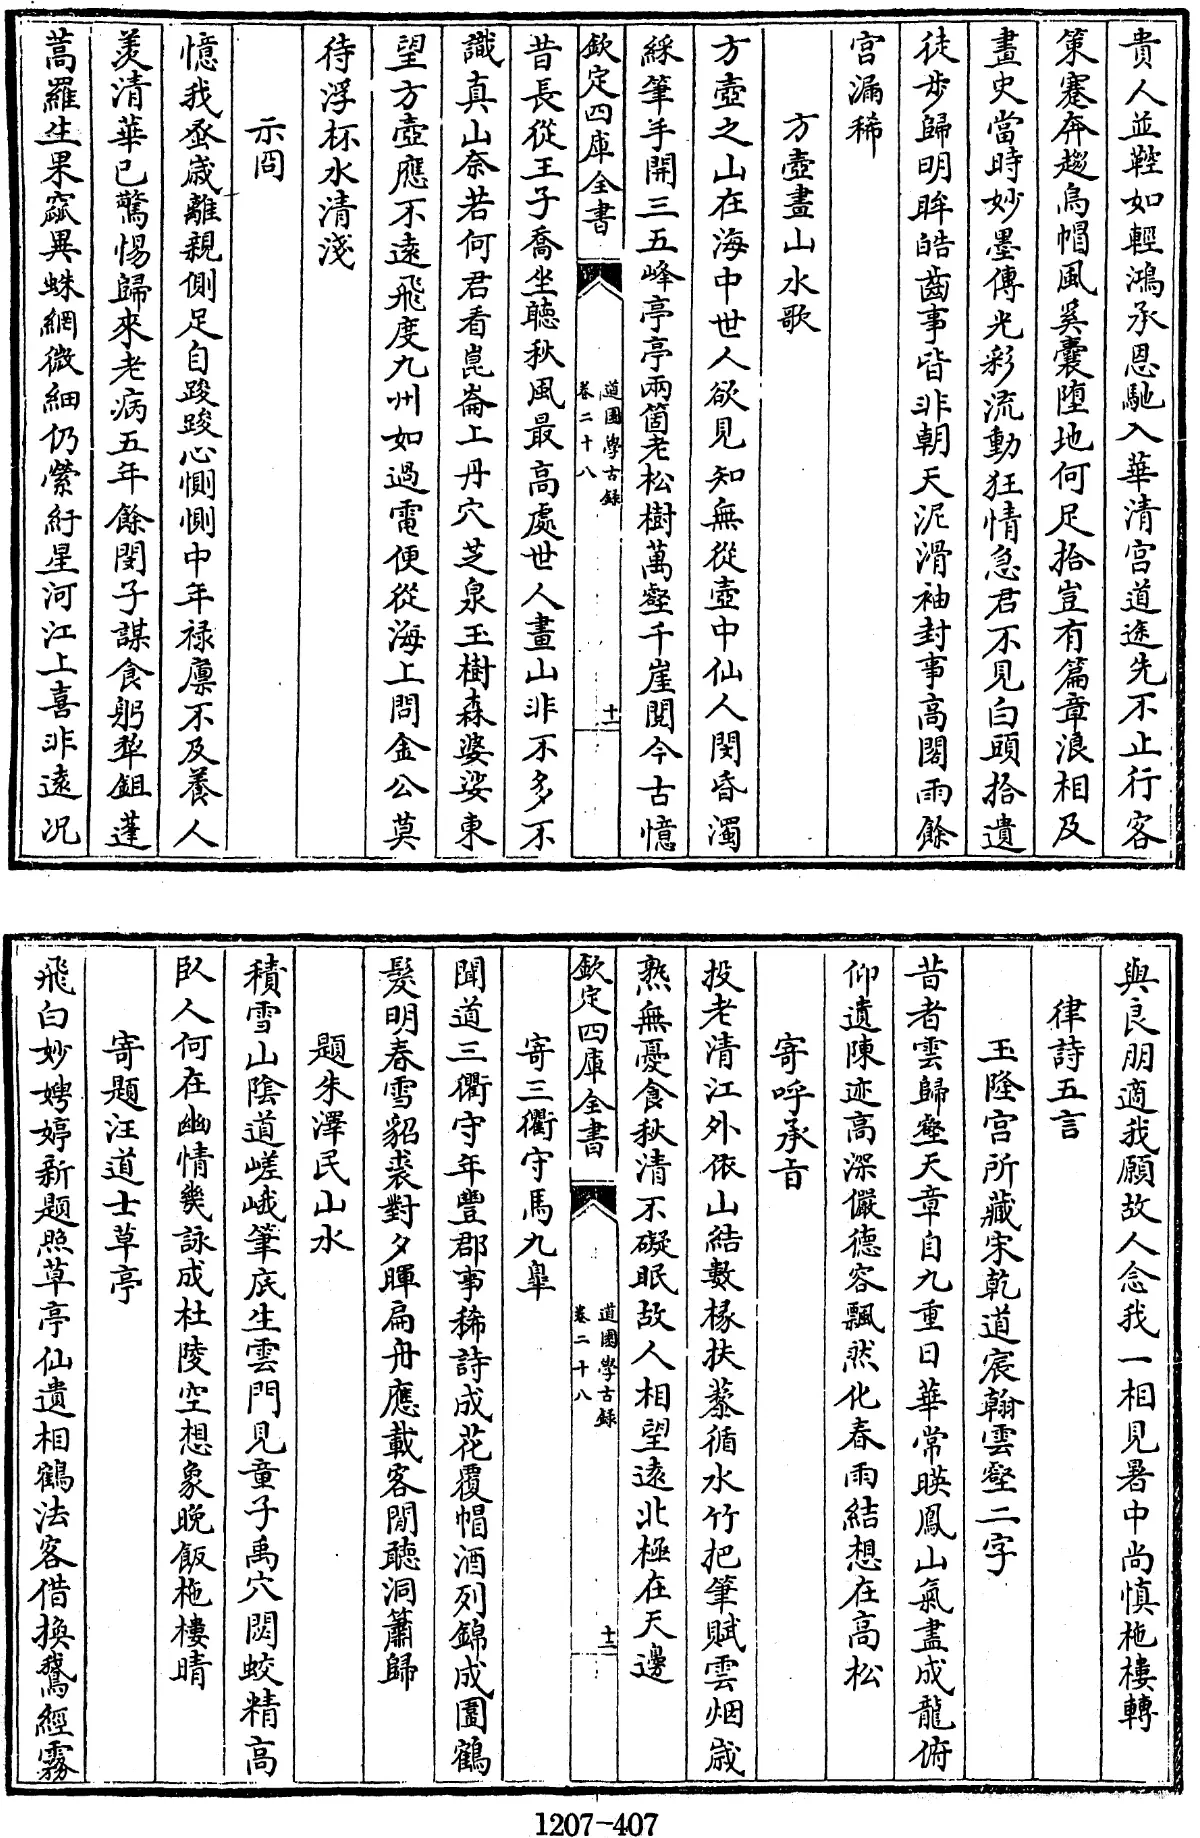 貴人並鞚如輕鴻承恩馳入華清宫道途先不止行客
策蹇奔趨烏帽風奚囊墮地何足拾豈有篇章浪相及
畫史當時妙墨傳光彩流動狂情急君不見白頭拾遺
徒歩歸明眸皓齒事皆非朝天泥滑袖封事高閣雨餘
宫漏稀
方壺畫山水歌
方壺之山在海中世人欲見知無從壺中仙人閔昏濁
綵筆手開三五峰亭亭兩箇老松樹萬壑千崖閲今古憶
欽定四庫全書
道園學古録
卷二十八
十一
昔長從王子喬坐聽秋風最高處世人畫山非不多不
識真山奈若何君看崑崙上丹穴芝泉玉樹森婆娑東
望方壺應不遠飛度九州如過電便從海上問金公莫
待浮杯水清淺
示冏
憶我蚤歳離親側足自踆踆心惻惻中年禄廪不及養人
羙清華已驚惕歸來老病五年餘閔子謀食躬犂鉏蓬
蒿羅生果窳異蛛網微細仍縈紆星河江上喜非遠况
與良朋適我願故人念我一相見暑中尚慎柂樓轉
律詩五言
玉隆宫所藏宋乾道宸翰雲壑二字
昔者雲歸壑天章自九重日華常暎鳳山氣盡成龍俯
仰遺陳迹高深儼德容飄然化春雨結想在高松
寄呼承旨
投老清江外依山結數椽扶藜循水竹把筆賦雲烟歳
熟無憂食秋清不礙眠故人相望遠北極在天邊
欽定四庫全書
道園學古録
卷二十八
十二
寄三衢守馬九臯
聞道三衢守年豐郡事稀詩成花覆帽酒列錦成圍鶴
髮明春雪貂裘對夕暉扁舟應載客閒聽洞簫歸
題朱澤民山水
積雪山隂道嵯峨筆底生雲門見童子禹穴閟蛟精高
臥人何在幽情幾詠成杜陵空想象晚飯柂樓晴
寄題汪道士草亭
飛白妙娉婷新題照草亭仙遺相鶴法客借換鵞經霧
1207-407